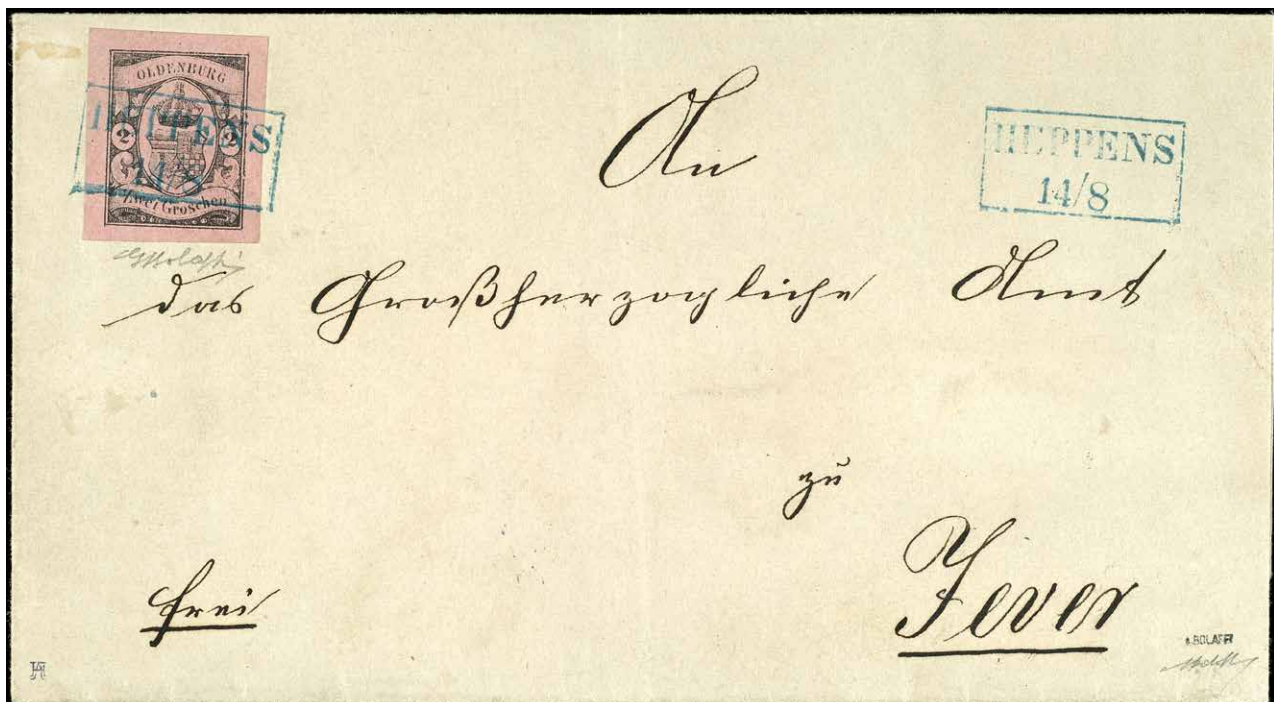 OLDENBURG
2 2
Zwei Groschen
HEPPENS
14/8
HEPPENS
14/8
An
das Großherzogliche Amt
zu
Jever
frei
A. BOLAFFI